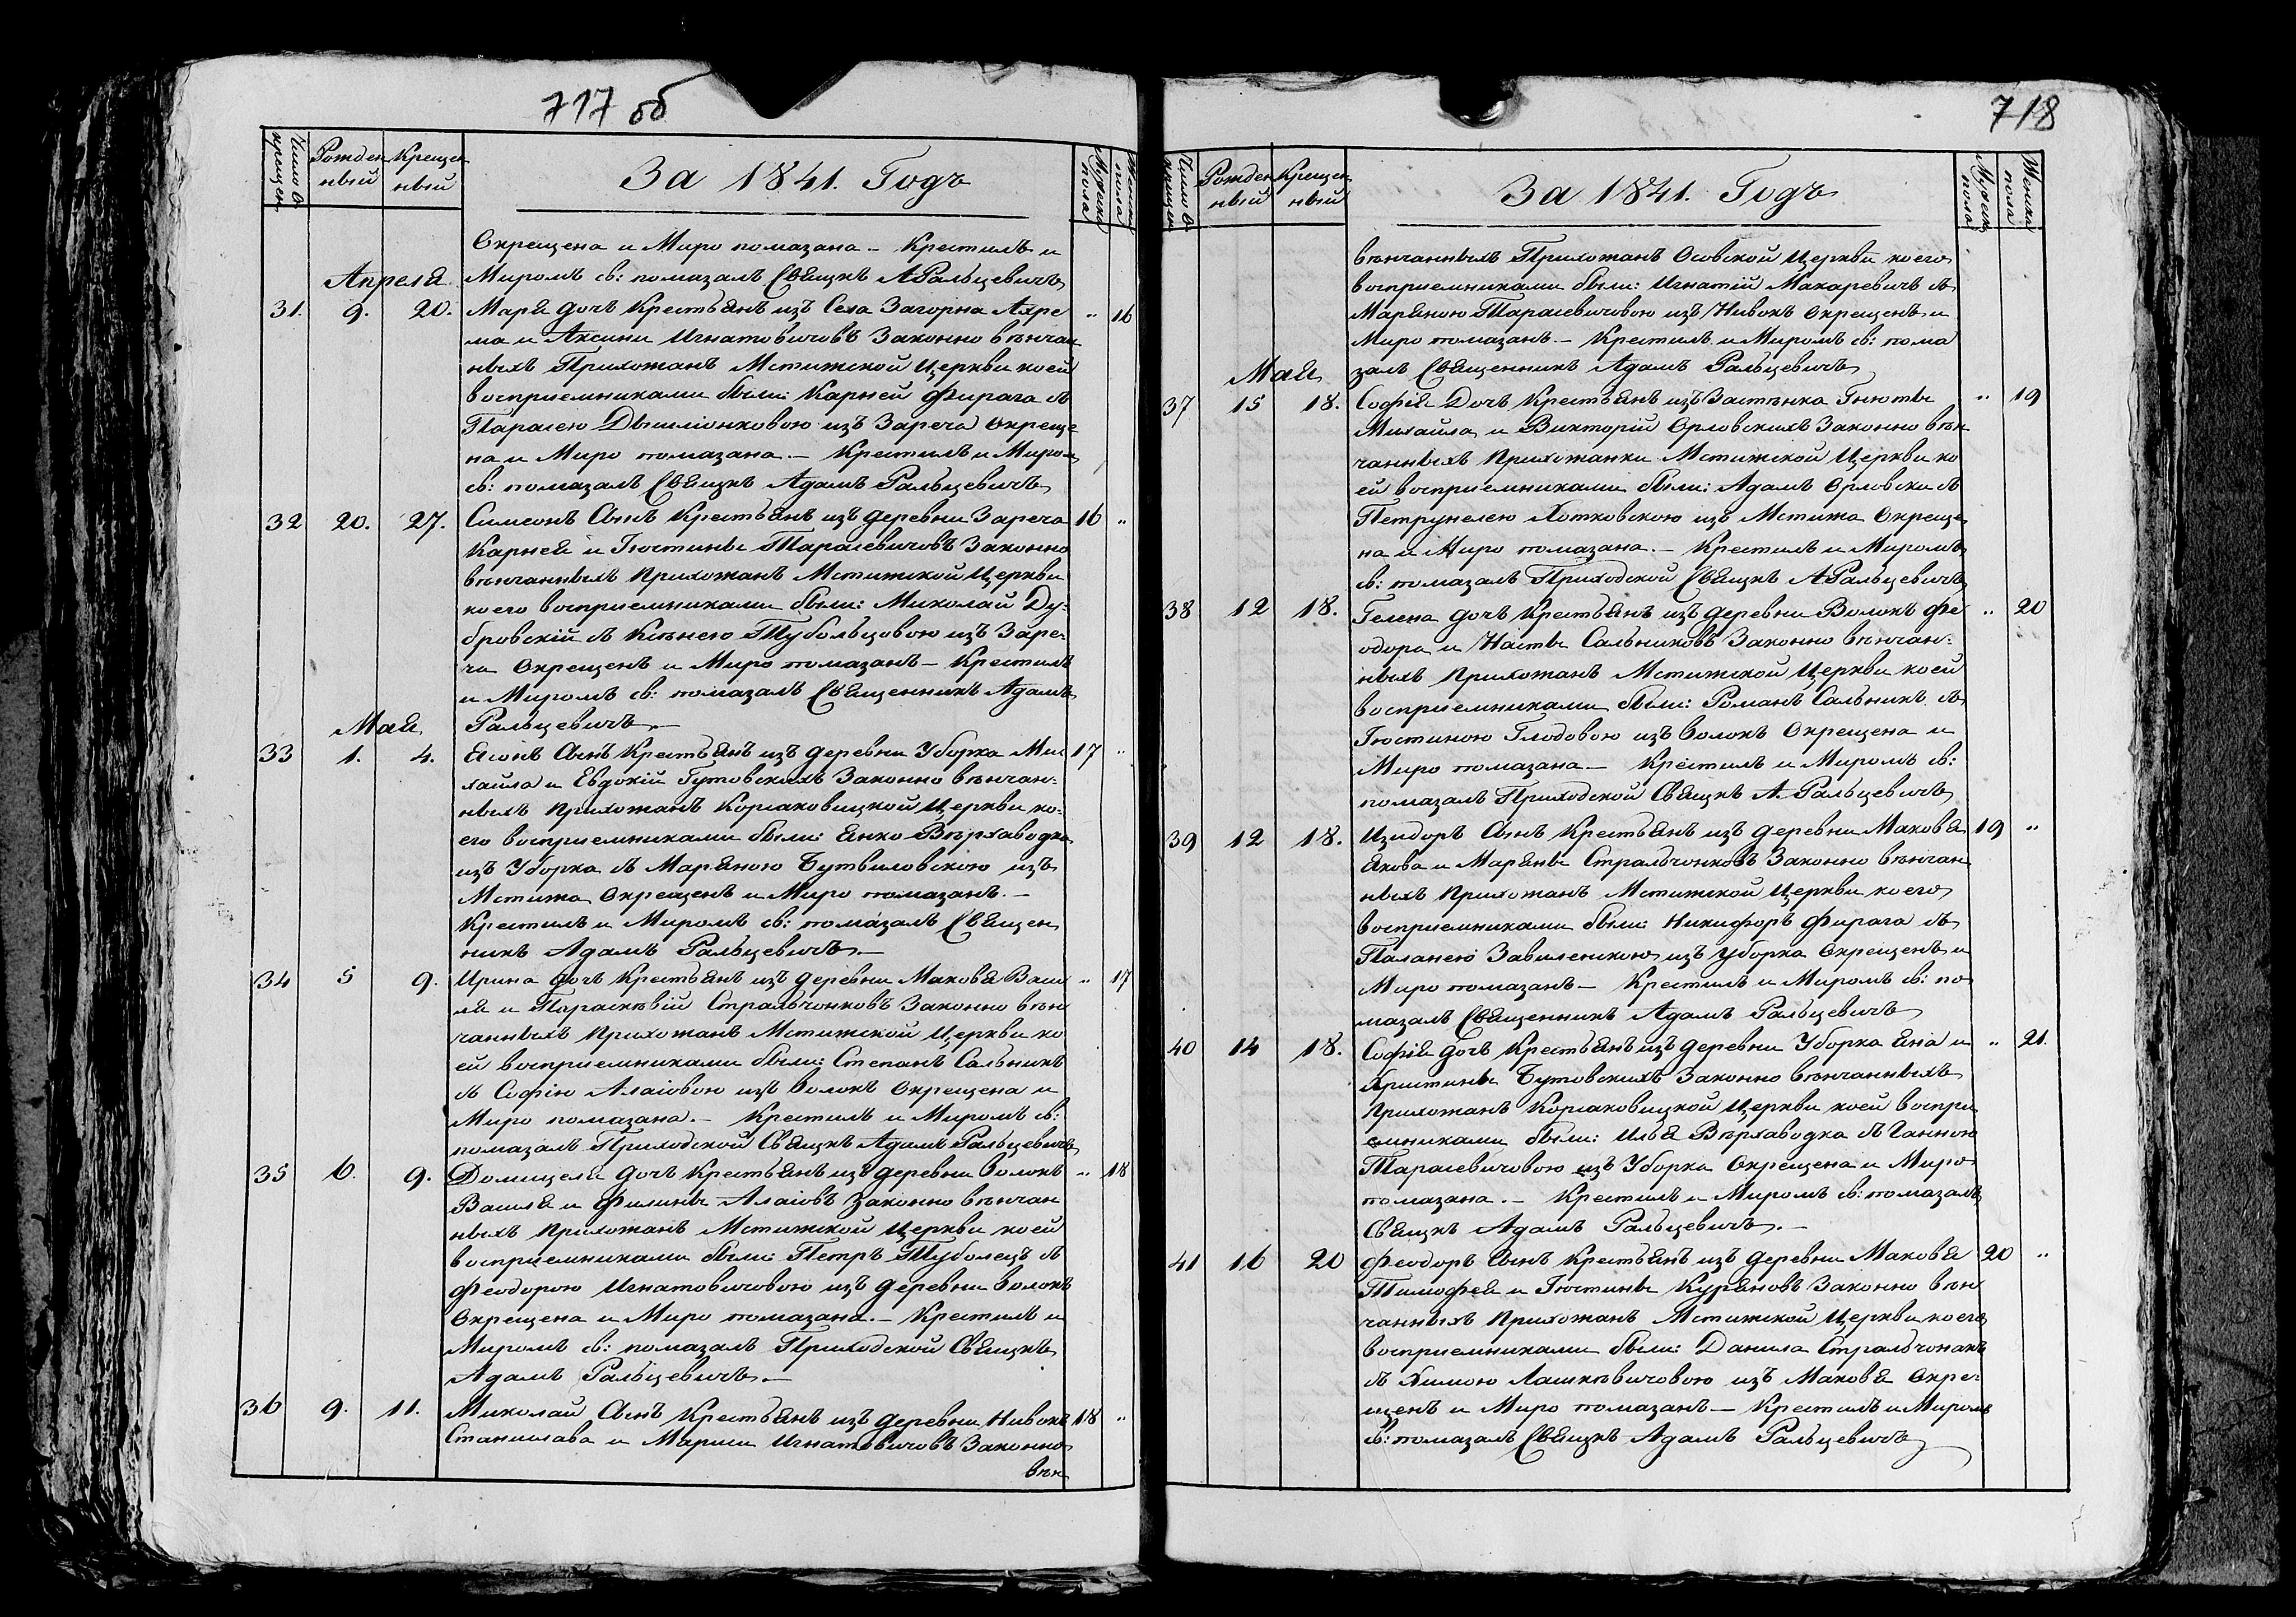 717 об
Число крещен
Рожден
ный
Крещен
ный
За 1841. Годъ
Мужеска
пола
Женска
пола
Окрещена и Миро помазана – Крестилъ и
Апреля Миромъ св: помазалъ Свящнкъ АРальцевичъ
31. 9. 20. Маря дочъ Крестьянъ изъ Села Загорна Ахре „ 16
ма и Аксини Игнатовичовъ Законно вѣнчан
ныхъ Прихожанъ Мстижской Церкви коей
восприемниками были: Карней Фирага съ
Парасею изъ Зареча окреще
на и Миро помазана. – Крестилъ и Миром
св: помазалъ Свящнкъ Адамъ Ральцевичъ
32 20. 27. Симеонъ Сынъ Крестьянъ изъ деревни Зареча 16 „
Карнея и Іюстины Тарасевичовъ Законно
вѣнчанныхъ прихожанъ Мстижской Церкви
коего восприемниками были: Миколай Ду-
бровскій съ Ксѣнею Тубольцовою изъ Заре-
ча Окрещенъ и Миро помазанъ – Крестилъ
и Миромъ св: помазалъ Священникъ Адамъ
Мая Ральцевичъ. –
33 1. 4. Ясонъ Сынъ Крестьянъ изъ деревни Уборка Ми 17 „
хайла и Евдокій Гутовскихъ Законно вѣнчан-
ныхъ прихожанъ Корсаковицкой Церкви ко-
его восприемниками были: Янко Вѣрхаводка
изъ Уборка съ Маряною Бутвиловскою изъ
Мстижа Окрещенъ и Миро помазанъ. –
Крестилъ и Миромъ св: помазалъ Священ
никъ Адамъ Ральцевичъ. –
34 5 9. Ирина дочъ Крестьянъ изъ деревни Маковя Васи „ 17
ля и Параскѣвій Стральчонковъ Законно вѣн
чанныхъ прихожанъ Мстижской Церкви ко
ей восприемниками были: Степанъ Сальникъ
съ Софію Алаіовою изъ Волокъ окрещена и
Миро помазана. – Крестилъ и Миромъ св:
помазалъ Приходской Свящнкъ Адамъ Ральцевичъ
35 6. 9. Домицеля дочъ Крестьянъ изъ деревни Волокъ „ 18
Василя и Филины Алаіовъ Законно вѣнчан
ныхъ прихожанъ Мстижской Церкви коей
восприемниками были: Петръ Туболецъ съ
Феодорою Игнатовичовою изъ деревни Волокъ
Окрещена и Миро помазана. – Крестилъ и
Миромъ св: помазалъ Приходской Свящнкъ
Адамъ Ральцевичъ. –
36 9. 11. Миколай Сынъ Крестьянъ изъ деревни Нивокъ 18 „
Станислава и Марыи Игнатовичовъ Законно
вѣн
718
Число крещен
Рожден
ный
Крещен
ный
За 1841. Годъ
Мужеска
пола
Женска
пола
вѣнчанныхъ Прихожанъ Осовской Церкви коего
восприемниками были: Игнатій Макаревичъ съ
Маряною Тарасевичовою изъ Нивокъ окрещенъ и
Миро помазанъ. – Крестилъ и Миромъ св: пома
Мая залъ Священникъ Адамъ Ральцевичъ
37 15 18. Софія Дочъ Крестьянъ изъ Застѣнка Гнюты „ 19
Михайла и Викторій Орловскихъ Законно вѣн
чанныхъ прихожанки Мстижской Церкви ко
ей восприемниками были: Адамъ Орловски съ
Петрунелею Хотковскою изъ Мстижа Окреще
на и Миро помазана. – Крестилъ и Миромъ
св: помазалъ Приходской Свящнкъ АРальцевичъ
38 12 18. Гелена дочъ Крестьянъ изъ деревни Волокъ Фе „ 20
одора и Насты Сальниковъ Законно вѣнчан-
ныхъ прихожанъ Мстижской Церкви коей
восприемниками были: Романъ Сальникъ съ
Іюстиною Глодовою изъ Волокъ Окрещена и
Миро помазана – Крестилъ и Миромъ св:
помазалъ Приходской Свящнкъ А. Ральцевичъ
39 12 18. Изидоръ Сынъ Крестьянъ изъ деревни Маковя 19 „
Якова и Маряны Стральчонковъ Законно вѣнчан
ныхъ прихожанъ Мстижской Церкви коего
восприемниками были: Никифоръ Фирага съ
Паланею Завиленкою изъ Уборка Окрещенъ и
Миро помазанъ – Крестилъ и Миромъ св: по
мазалъ Священникъ Адамъ Ральцевичъ
40 14 18. Софія дочъ Крестьянъ изъ деревни Уборка Яна и „ 21.
Христины Бутовскихъ Законно вѣнчанныхъ
прихожанъ Корсаковицкой Церкви коей воспри
емниками были: Илья Вѣрхаводка съ Ганною
Тарасевичовою изъ Уборка Окрещена и Миро
помазана. – Крестилъ и Миромъ св: помазалъ
Свящнкъ Адамъ Ральцевичъ. –
41 16 20 Феодоръ Сынъ Крестьянъ изъ деревни Маковя 20 „
Тимофея и Іюстины Куряновъ Законно вѣн
чанныхъ прихожанъ Мстижской Церкви коего
восприемниками были: Данила Стральчонакъ
съ Химою Лашкѣвичовою изъ Маковя Окре-
щенъ и Миро помазанъ – Крестилъ и Миромъ
св: помазалъ Свящнкъ Адамъ Ральцевичъ